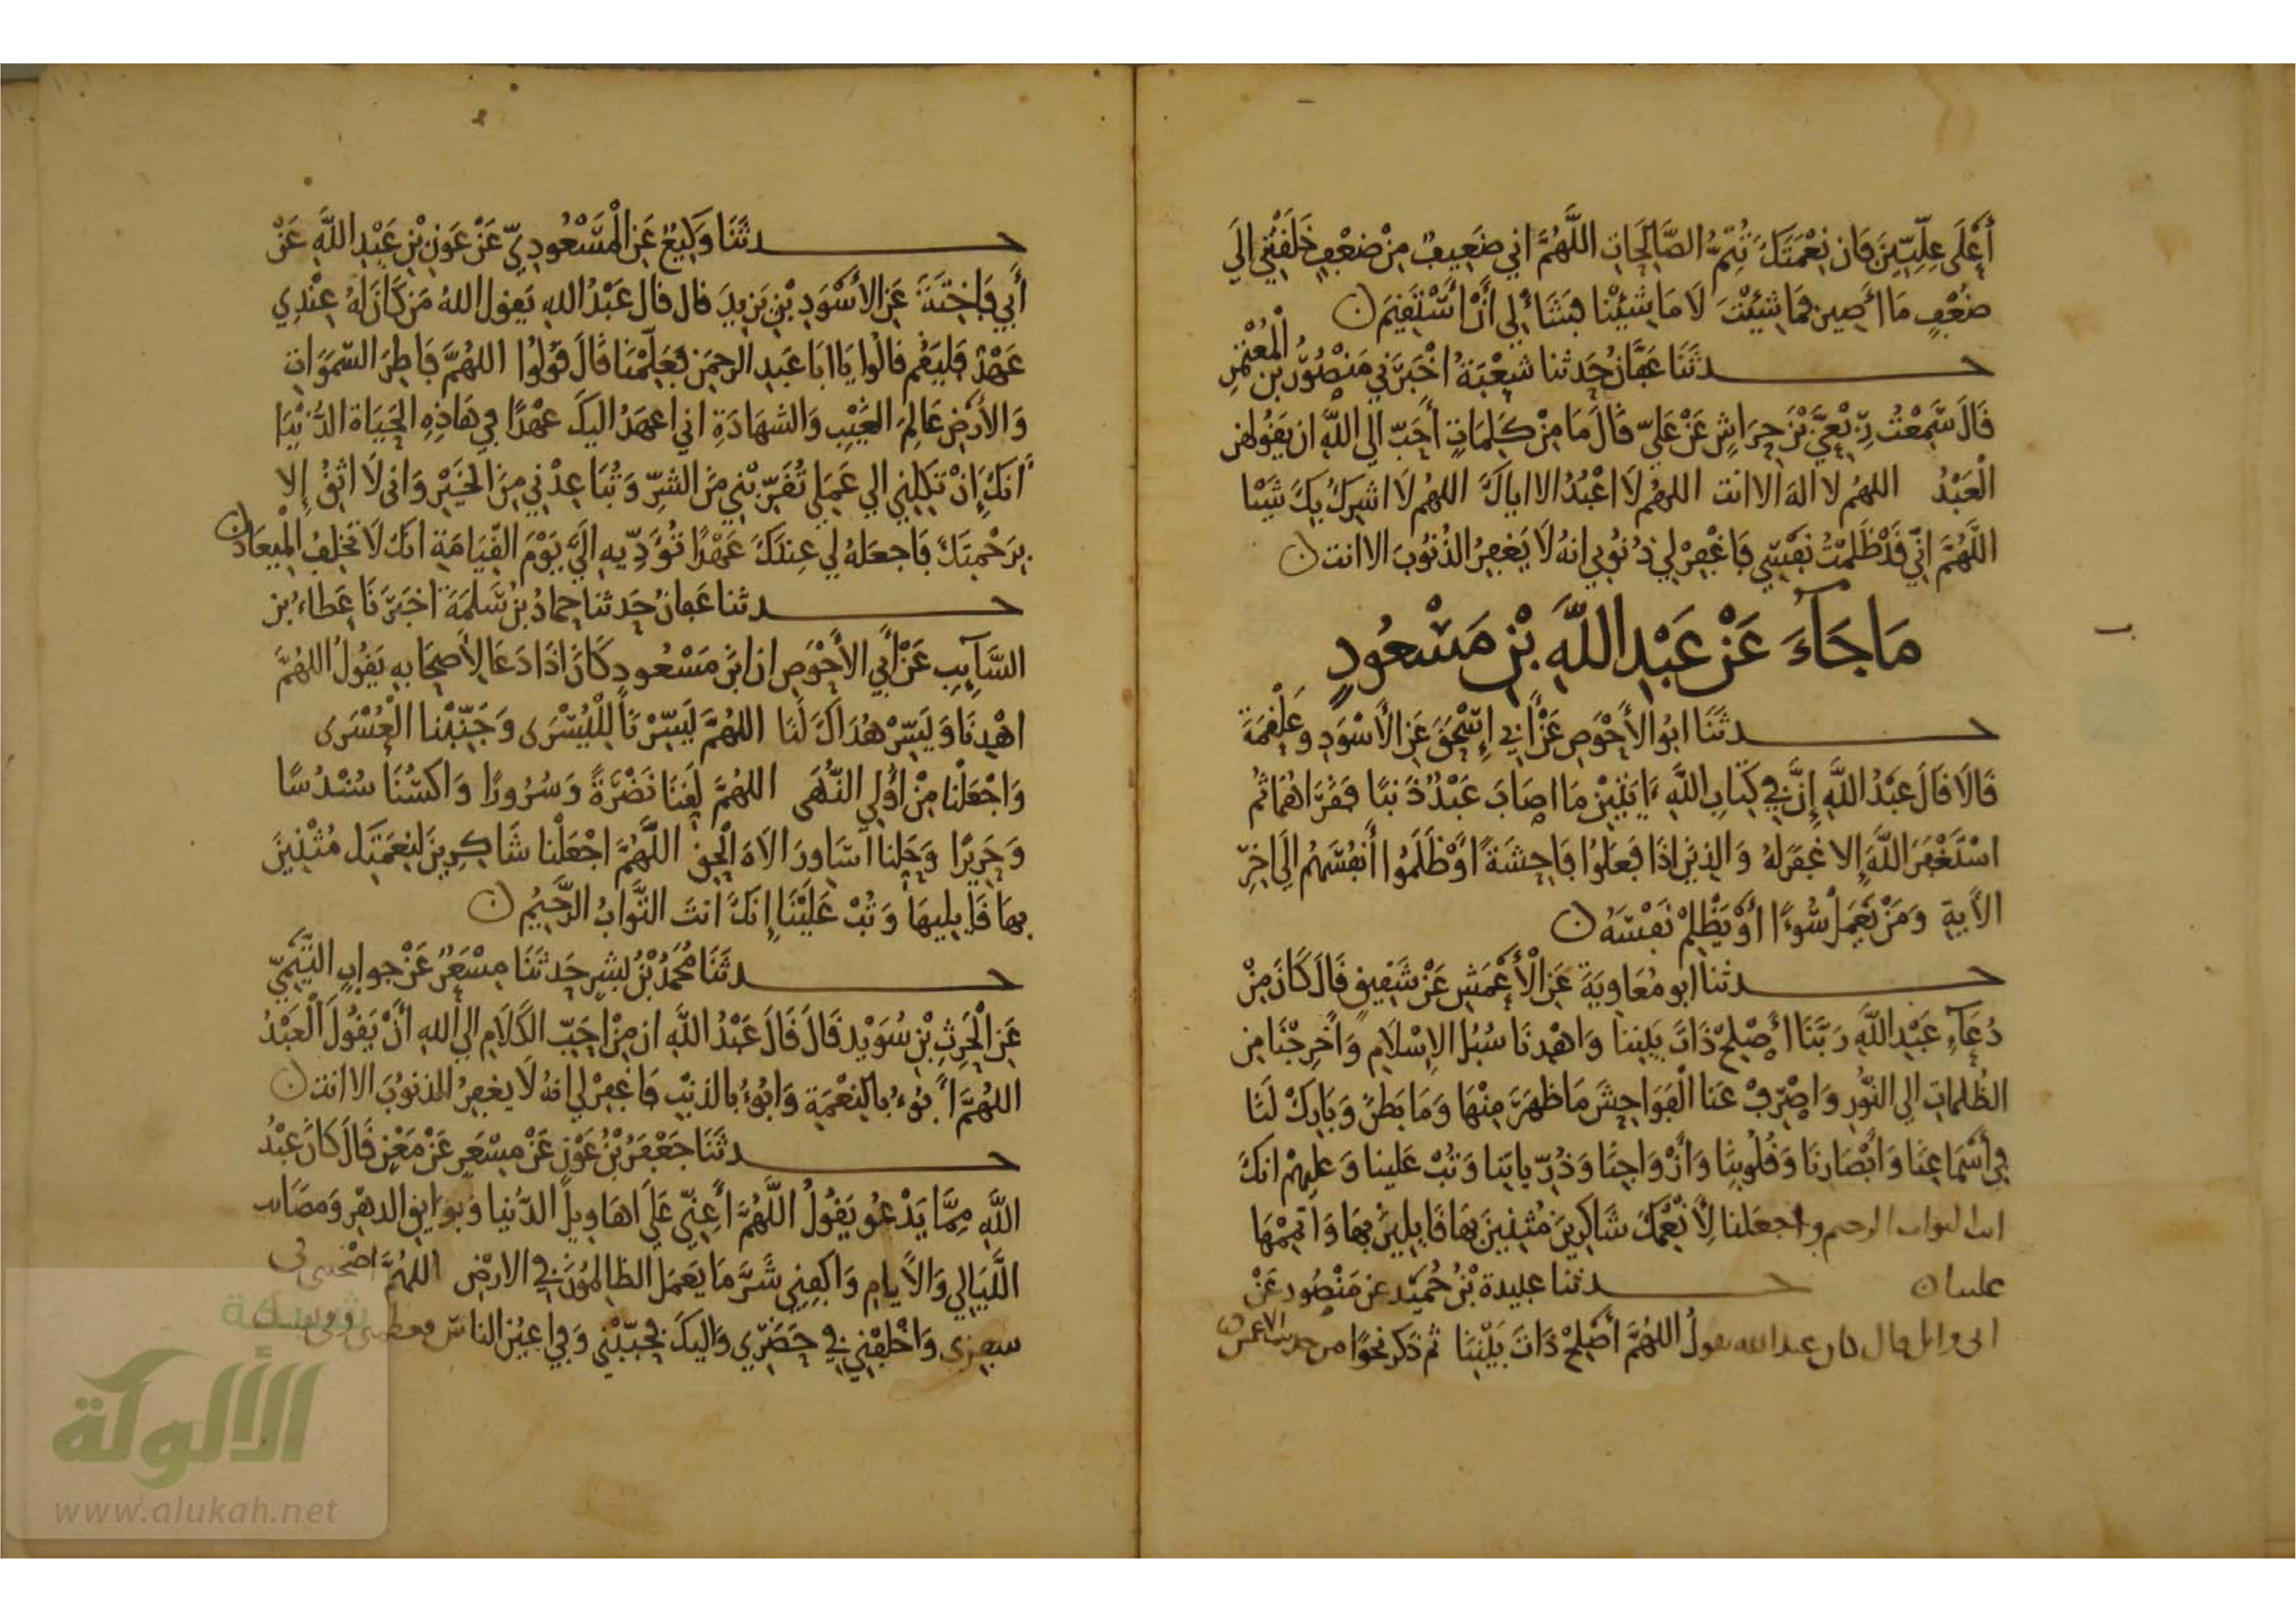 أَعْلَى عِلِّيِّينَ فَإن نِعْمَتَكَ تُتِمُّ الصَّالِحَاتِ اللَّهُمَّ اني ضَعِيفٌ مِنْ ضعْفٍ خَلَقْتَنِي إلَى
ضعْفٍ مَا أَصِير فمَا شِئْتَ لَا مَا شِئْنا فَشَأْ لِي أَنْ أَسْتَقِيمَ
حدثَنَا عَفَّانُ حَدثنا شعْبَةُ اخْبَرَنِي مَنْصُورُ بن الْمُعْتَمِرِ
قَالَ سَمِعْتُ رِبْعِيَّ بْنَ حِرَاشٍ عَنْ عَلِيّ قَالَ مَا مِنْ كَلِمَاتٍ أَحَبّ إلى اللَّهِ ان يَقُولهن
الْعَبْدُ اللهُم لا اله الا انت اللهُم لَا اعْبُدُ الا اياكَ اللهُم لَا اشرِكُ بِكَ شَيْئا
اللَّهُمَّ انِّي قَدْ ظَلَمْتُ نفْسِي فَاغْفِرْ لِي ذنُوبِي انهُ لَا يَغفِرُ الذنُوبَ الا انت
مَا جَاءَ عَنْ عَبْدِ اللَّهِ بْنِ مَسْعُودٍ
حدثَنَا ابُو الأَحْوَصِ عَنْ أَبِي إِسْحَقَ عَنِ الأَسْوَدِ وعَلْقَمَة
قَالَا قَالَ عَبْدُ اللَّهِ إنَّ فِي كِتَابِ اللَّهِ ءايَتَيْنِ مَا اصَابَ عَبْدٌ ذَنبًا فَقَرَاهُمَا ثُم
اسْتَغْفَرَ اللَّهَ إلا غفَرَ لهُ وَالذِينَ اذَا فَعَلُوا فَاحِشَةً اوْ ظَلَمُوا أَنفُسَهُم إلَى اخِرِ
الآيةِ وَمَنْ يَعْمَلْ سُوءًا أَوْ يَظْلِمْ نَفْسَهُ
حدثنا ابو مُعَاوِيَةَ عَنِ الْأَعْمَشِ عَنْ شَقِيقٍ قَالَ كَانَ مِنْ
دُعَاءِ عَبْدِ اللَّهِ رَبَّنَا أَصْلِحْ ذَاتَ بَيْننا وَاهْدِنَا سُبُلَ الإِسْلَامِ وَأَخْرِجْنَا مِن
الظُلمَاتِ إلى النُّورِ وَاصْرِفْ عَنا الْفَوَاحِشَ مَا ظهَرَ مِنْهَا وَمَا بَطنَ وَبَارِكْ لَنَا
فِي أَسْمَاعِنَا وَأَبْصَارِنَا وَقُلُوبِنَا وَأَزْوَاجِنَا وَذُرِّيَاتِنا وَتُبْ عَلينا وَعليهِمْ انكَ
انت التواب الرحيم واجعَلنا لِأَنْعُمِكَ شَاكِرِينَ مُثْنِينَ بِهَا قَابِلِينَ بهَا وَاتْمِمْهَا
علينا حدثنا عبيدة بْنُ حُمَيْد عن مَنْصُور عَنْ
ابى وائل قال كان عبد الله يقول اللهُمَّ أَصْلِحْ ذَاتَ بَيْنِنَا ثم ذكر نحوًا من حديث الاعمش
حدثَنَا وَكِيعٌ عَنِ الْمَسْعُودِيِّ عَنْ عَوْنِ بْنِ عَبْدِ اللَّهِ عَنْ
أَبِي فَاخِتَةَ عَنِ الأَسْوَدِ بْنِ يَزِيدَ قال قال عَبْدُ اللهِ يَقول اللهُ مَن كَانَ لَهُ عِنْدِي
عَهْدٌ فليَقُم قالُوا يَا ابَا عَبدِ الرحمَن فعَلِّمْنَا قَالَ قُولُوا اللهُمَّ فَاطِرَ السَّمَوَاتِ
وَالأَرْضِ عَالِمَ الغَيْبِ وَالشهَادَةِ اني اعهَدُ اليكَ عهْدًا فِي هَاذِهِ الحَيَاة الدُّنْيَا
أَنكَ إنْ تَكِلْنِي إلى عَمَلِي تُقَرِّبْنِي منَ الشرِّ وَتُبَاعِدْنِي مِنَ الخَيْرِ وَانى لَا اثِقُ إلا
بِرَحْمَتِكَ فَاجعَلهُ لِي عِندَكَ عَهْدًا تُؤَدِّيهِ إلَيَّ يَوْمَ القِيَامَةِ انكَ لَا تخْلِفُ الْمِيعَادَ
حدثنا عَفانُ حَدثنا حمادُ بْنُ سَلمَةَ اخبَرَنَا عَطاءُ بْن
السَّائِبِ عَنْ أَبِي الأَحْوَصِ ان ابْنَ مَسْعُودٍ كَانَ اذَا دَعَا لِأَصحَابِهِ يَقُولُ اللهُمَّ
اهْدِنَا وَيَسِّرْ هُدَاكَ لَنَا اللهُمَّ يَسِّرْنَا لِلْيُسْرَى وَجَنِّبْنا الْعُسْرَى
وَاجْعَلْنا مِنْ أُولِي النُّهَى اللهُمَّ لَقِّنَا نَضْرَةً وَسُرُورًا وَاكسُنَا سُنْدُسًا
وَحَرِيرًا وَحَلِّنا أَسَاوِرَ الاه الْحَقِّ اللَّهُمَّ اجْعَلْنا شَاكِرِينَ لِنعْمَتِكَ مُثْنِينَ
بِهَا قَابِلِيهَا وَتُبْ عَلَيْنَا إنكَ أَنتَ التَّوَّابُ الرَّحِيمُ
حدثَنَا مُحَمَدُ بْنُ بِشرٍ حَدثَنَا مِسْعَرٌ عَنْ جوابٍ التَّيْمِيِّ
عَنِ الْحَرِثِ بْنِ سُوَيْدٍ قَالَ قَالَ عَبْدُ اللَّهِ ان مِنْ احَبِّ الكَلَامِ إلى اللهِ أَنْ يَقُولَ الْعَبْدُ
اللهُمَّ أَبُوءُ بالنعْمَةِ وَابُوءُ بالذنْبِ فَاغفِرْ لِي انهُ لَا يغفِرُ الذنوُبَ الا انت
حدثَنَا جَعْفَرُ بْنُ عَوْنٍ عَنْ مِسْعَرٍ عَنْ مَعْنٍ قَالَ كانَ عَبْدُ
اللَّهِ مِمَّا يَدْعُو يَقُولُ اللَّهُمَّ أَعِنِّي عَلَى اهَاوِيلِ الدُّنيا وَبوَايقِ الدهْرِ وَمصَائب
اللَّيَالِي وَالأَيامِ وَاكْفِنِي شَرَّ مَا يَعمَلُ الظالِمُونَ فِي الارْضِ اللهُمَّ اصْحبنى فى
سفرِى وَاخْلُفْنِي فِي حَضَرِي وَإليكَ فَحَبِّبْنِي وَفِي اعيُنِ الناسِ فعظمنى
شبكة
الألوكة
www.alukah.net